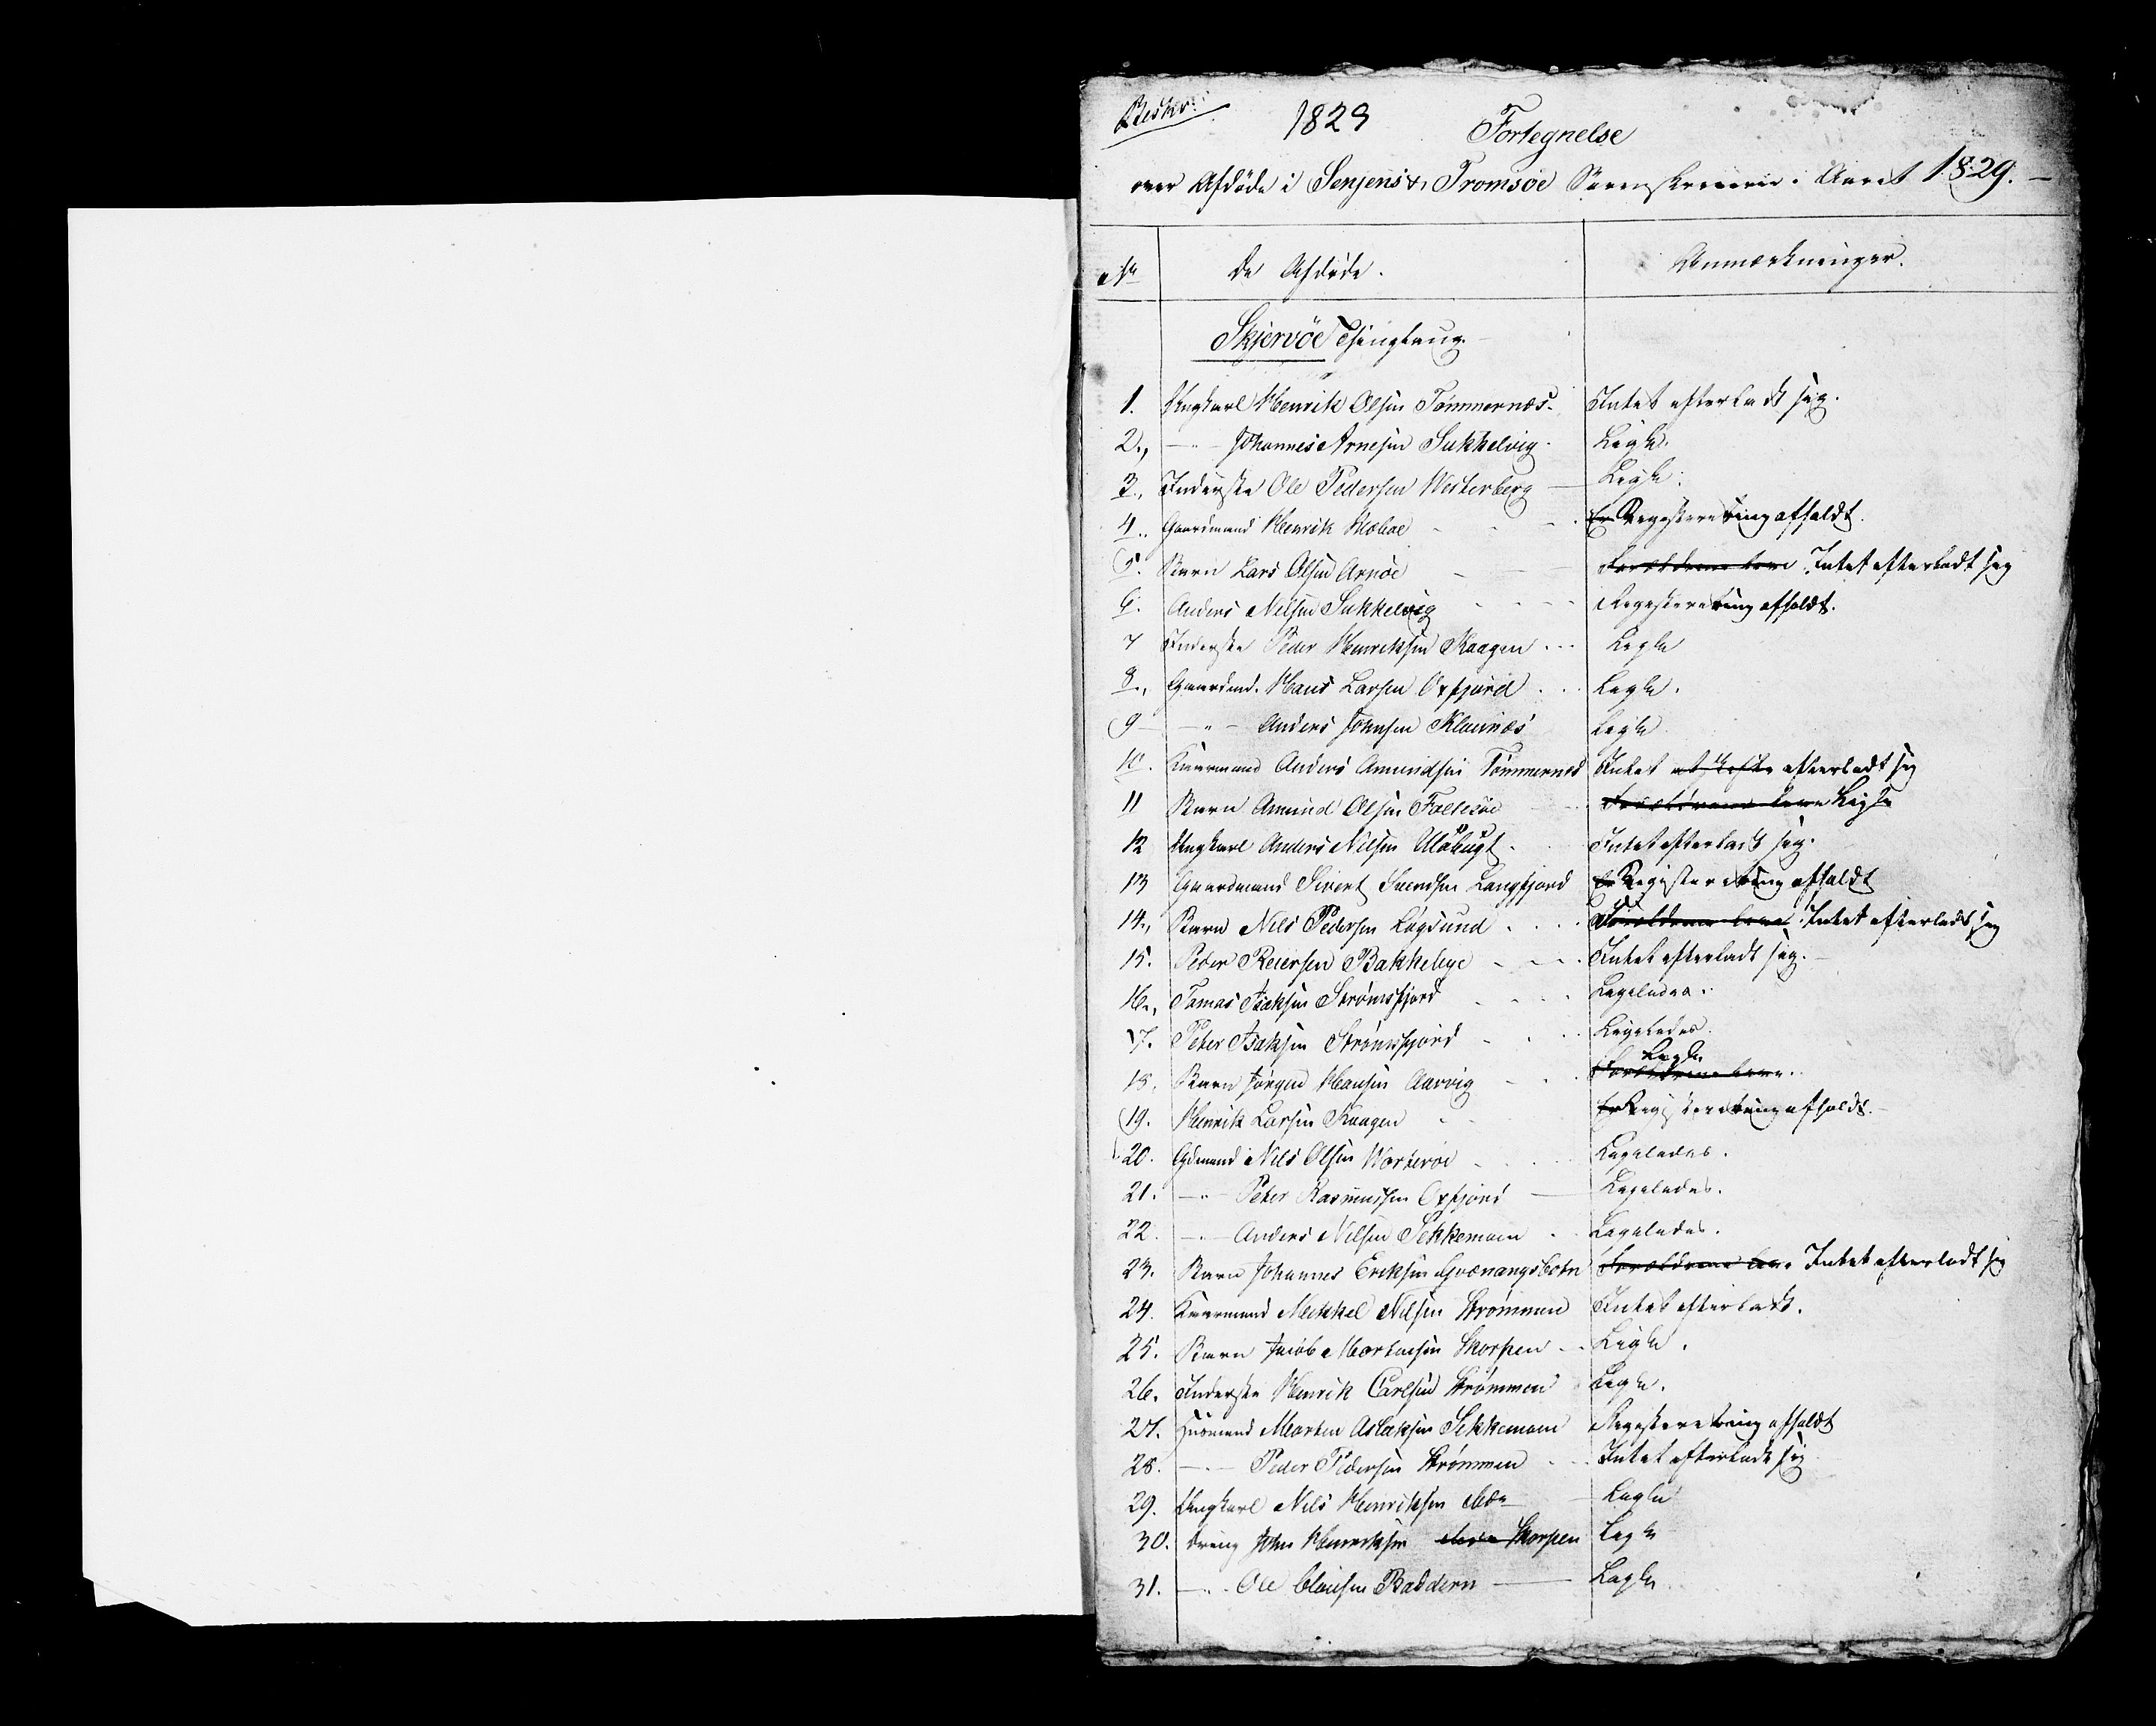 1829
Fortegnelse
over Afdöde i Senjens & Tromsöe Sorenskriverie i Aaret 1829. —
No De Afdöde. Anmærkninger.
Skjervöe Thinglaug.
1. Ungkarl Henrik Olsen Tömmernæs. Intet efterladt sig.
2., —"— Johannes Arnesen Sukkelvig. Ligl.
3., Inderste Ole Pedersen Westerberg — Ligl.
4.. Gaardmand Henrik - - - Er Registrering afholdt.
5. Barn Lars Olsen Arnöe - - Forældrene leve Intet efterladt sig
6. Anders Nilsen Sukkelvig - - - - Registrering afholdt.
7 Inderste Peder Henriksen Kaagen ... Ligl
8., Gaardmd. Hans Larsen Oxfjord . . Ligl.
9 —"— Anders Johnsen Klauvnæs Ligl
10. Kaarmand Anders Amundsen Tömmernæs Intet at skifte efterladt sig
11 Barn Amund Olsen Follesöe Forældrene leve Ligl
12 Ungkarl Anders Nilsen Ulöbugt. Intet efterladt sig.
13 Gaardmand Sivert Svendsen Langfjord Er Registrering afholdt
14., Barn Nils Pedersen Lögsund . . . . Forældrene leve Intet efterladt sig
15. Peder Reiersen Bakkebye - - - Intet efterladt sig. —
16., Tomas Isaksen Strömsfjord - - - - Ligeledes.
17. Peter Isaksen Strömsfjord - - - Ligeledes.
18. Barn Jörgen Hansen Aarvig - - - Forældrene leve. Ligl.
19. Henrik Larsen Kaagen - - Er Registrering afholdt. —
20. Gdmand Nils Olsen Worteröe - - - Ligeledes.
21. —"— Peter Rasmussen Oxfjord — Ligeledes.
22. —"— Anders Nilsen Sekkemoen - Ligeledes.
23. Barn Johannes Eriksen Qvænangsbotn Forældrene leve Intet efterladt sig
24. Kaarmand Mikkel Nilsen Strömmen Intet efterladt.
25. Barn Jacob Mortensen Skorpen - - Ligl.
26. Inderste Henrik Carlsen Strömmen Ligl.
27. Huusmand Morten Aslaksen Sekkemoen Registrering afholdt
28. —"— Peder Pedersen Strömmen - - Intet efterladt sig
29. Ungkarl Nils Henriksen — Ligl
30. Dreng John Henriksen Skorpen Ligl
31. —"— Ole Olausen Baddern — Ligl.